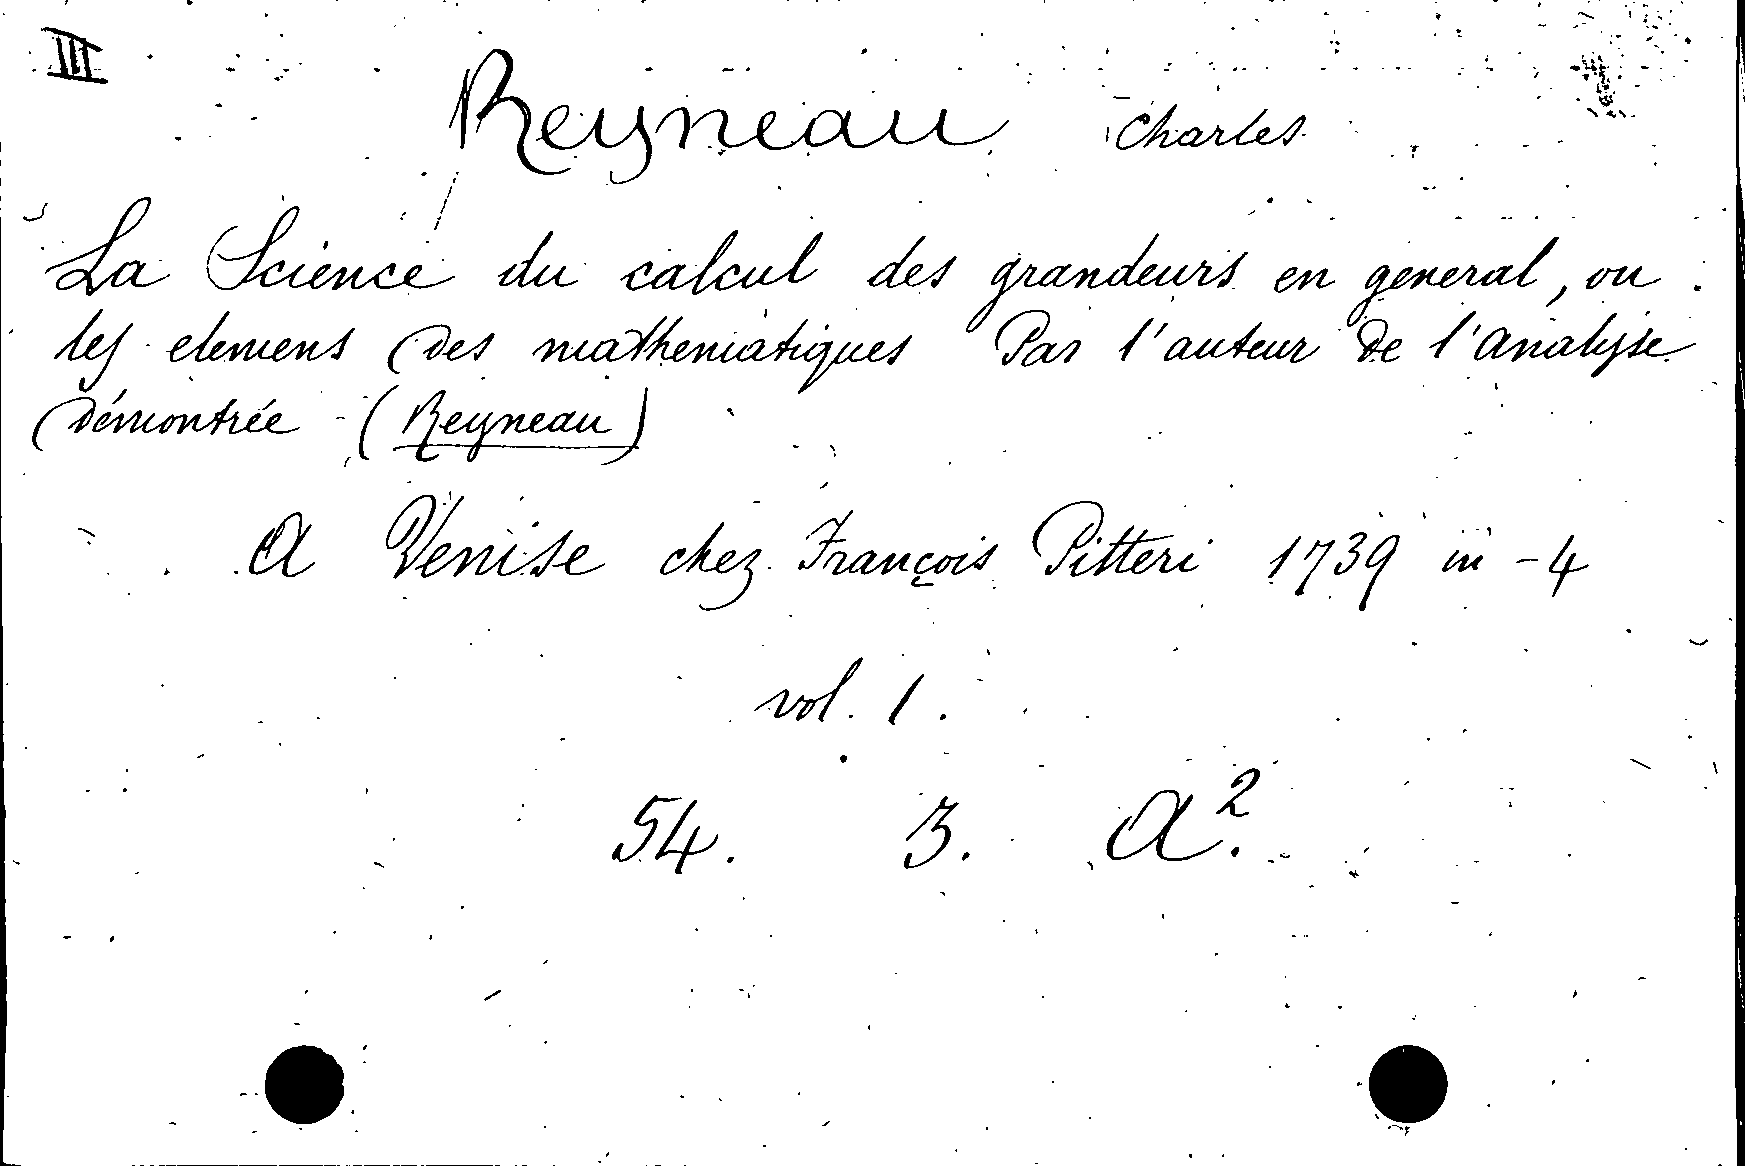 III
Reyneau Charles
La Science du calcul des grandeurs en general, ou
les elemens des mathematiques Par l'auteur de l'analyse
démontrée - (Reyneau)
A Venise chez François Pitteri 1739 in - 4
vol. 1.
54. 3. A².